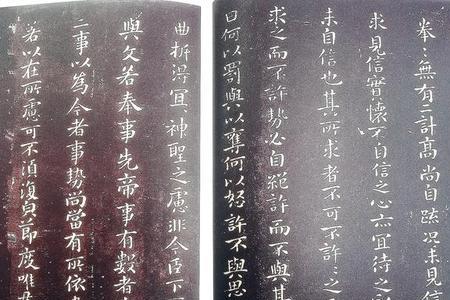 拳〻無有二計高尚自踈况未見信
求見信實懷不自信之心亦宜待之
未自信也其所求者不可不許〻之而
求之而不許勢必自絕許而不與其
曰何以罰與以奪何以怒許不與思
曲折得宜〻神聖之慮非今臣下
與文若奉事先帝事有數者
二事以為今者事勢尚當有所依
若以在所慮可不須復節度唯